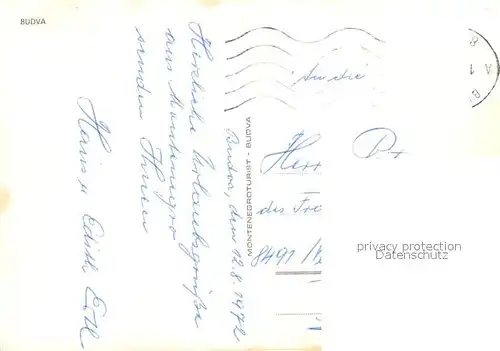 BUDVA
Budva, den 12.8.1972
Herzliche Urlaubsgrüße
aus Montenegro
senden Ihnen
Heinz u. Edith
MONTENEGROTURIST - BUDVA
An die
Herr
des
8491
privacy protection
Datenschutz